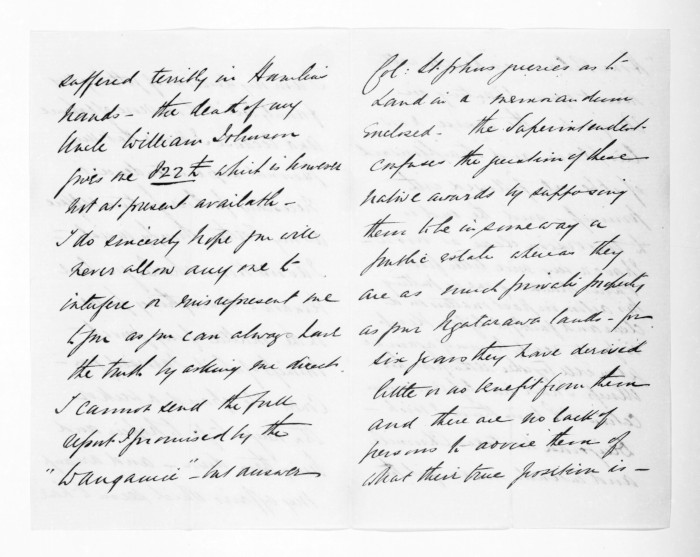 suffered terribly in Hamlin's
hands - the death of my
Uncle William Johnson
gives me which is however
not at present available -
I do sincerely hope you will
never allow any one to
interfere or misrepresent me
to you as you can always have
the truth by asking me direct.
I cannot send the full
report I promised by the
"Wanganui" - but answer
Col: St. Johns queries as to
Land in a memorandum
enclosed - the Superintendent
confuses the question of these
native awards by supposing
them to be in some way a
public estate whereas they
are as much private property
as your Ngatarawa lands - for
six years they have derived
little or no benefit from them
and there are no lack of
persons to advise them of
what their true position is -